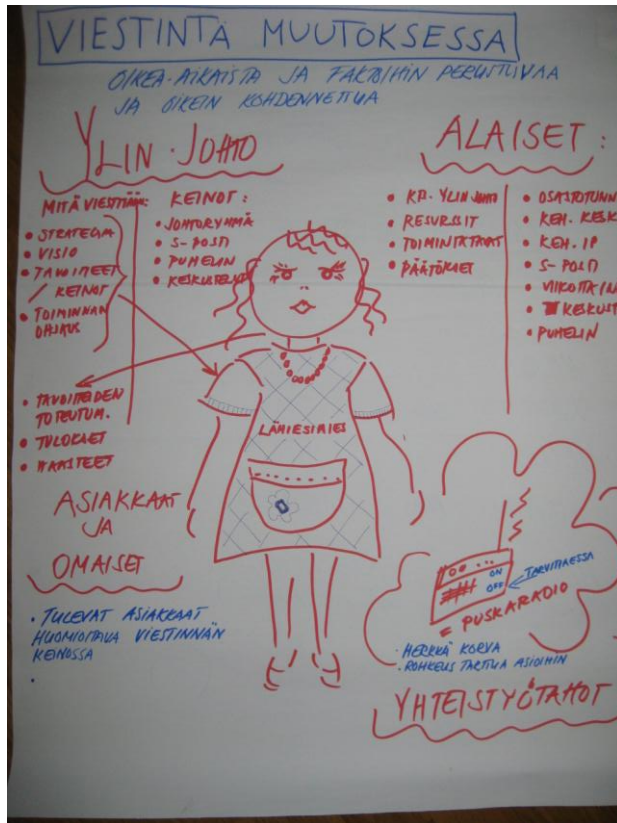 VIESTINTÄ MUUTOKSESSA
OIKEA-AIKAISTA JA FAKTOIHIN PERUSTUVAA
JA OIKEIN KOHDENNETTUA
YLIN JOHTO
MITÄ VIESTITÄÄN:
• STRATEGIA
• VISIO
• TAVOITTEET
/ KEINOT
• TOIMINNAN
OHJAUS
KEINOT:
• JOHTORYHMÄ
• S-POSTI
• PUHELIN
• KESKUSTELUT
• TAVOITTEIDEN
TOTEUTUM.
• TULOKSET
• HAASTEET
ALAISET:
• KP. YLIN JOHTO
• RESURSSIT
• TOIMINTATAVAT
• PÄÄTÖKSET
• OSASTOTUNN
• KEH. KESK
• KEH. IP
• S-POSTI
• VIIKOTTAIN
• KESKUST
• PUHELIN
LÄHIESIMIES
ASIAKKAAT
JA
OMAISET
• TULEVAT ASIAKKAAT
HUOMIOITAVA VIESTINNÄN
KEINOSSA
ON
OFF
TARVITTAESSA
= PUSKARADIO
• HERKKÄ KORVA
• ROHKEUS TARTTUA ASIOIHIN
YHTEISTYÖTAHOT